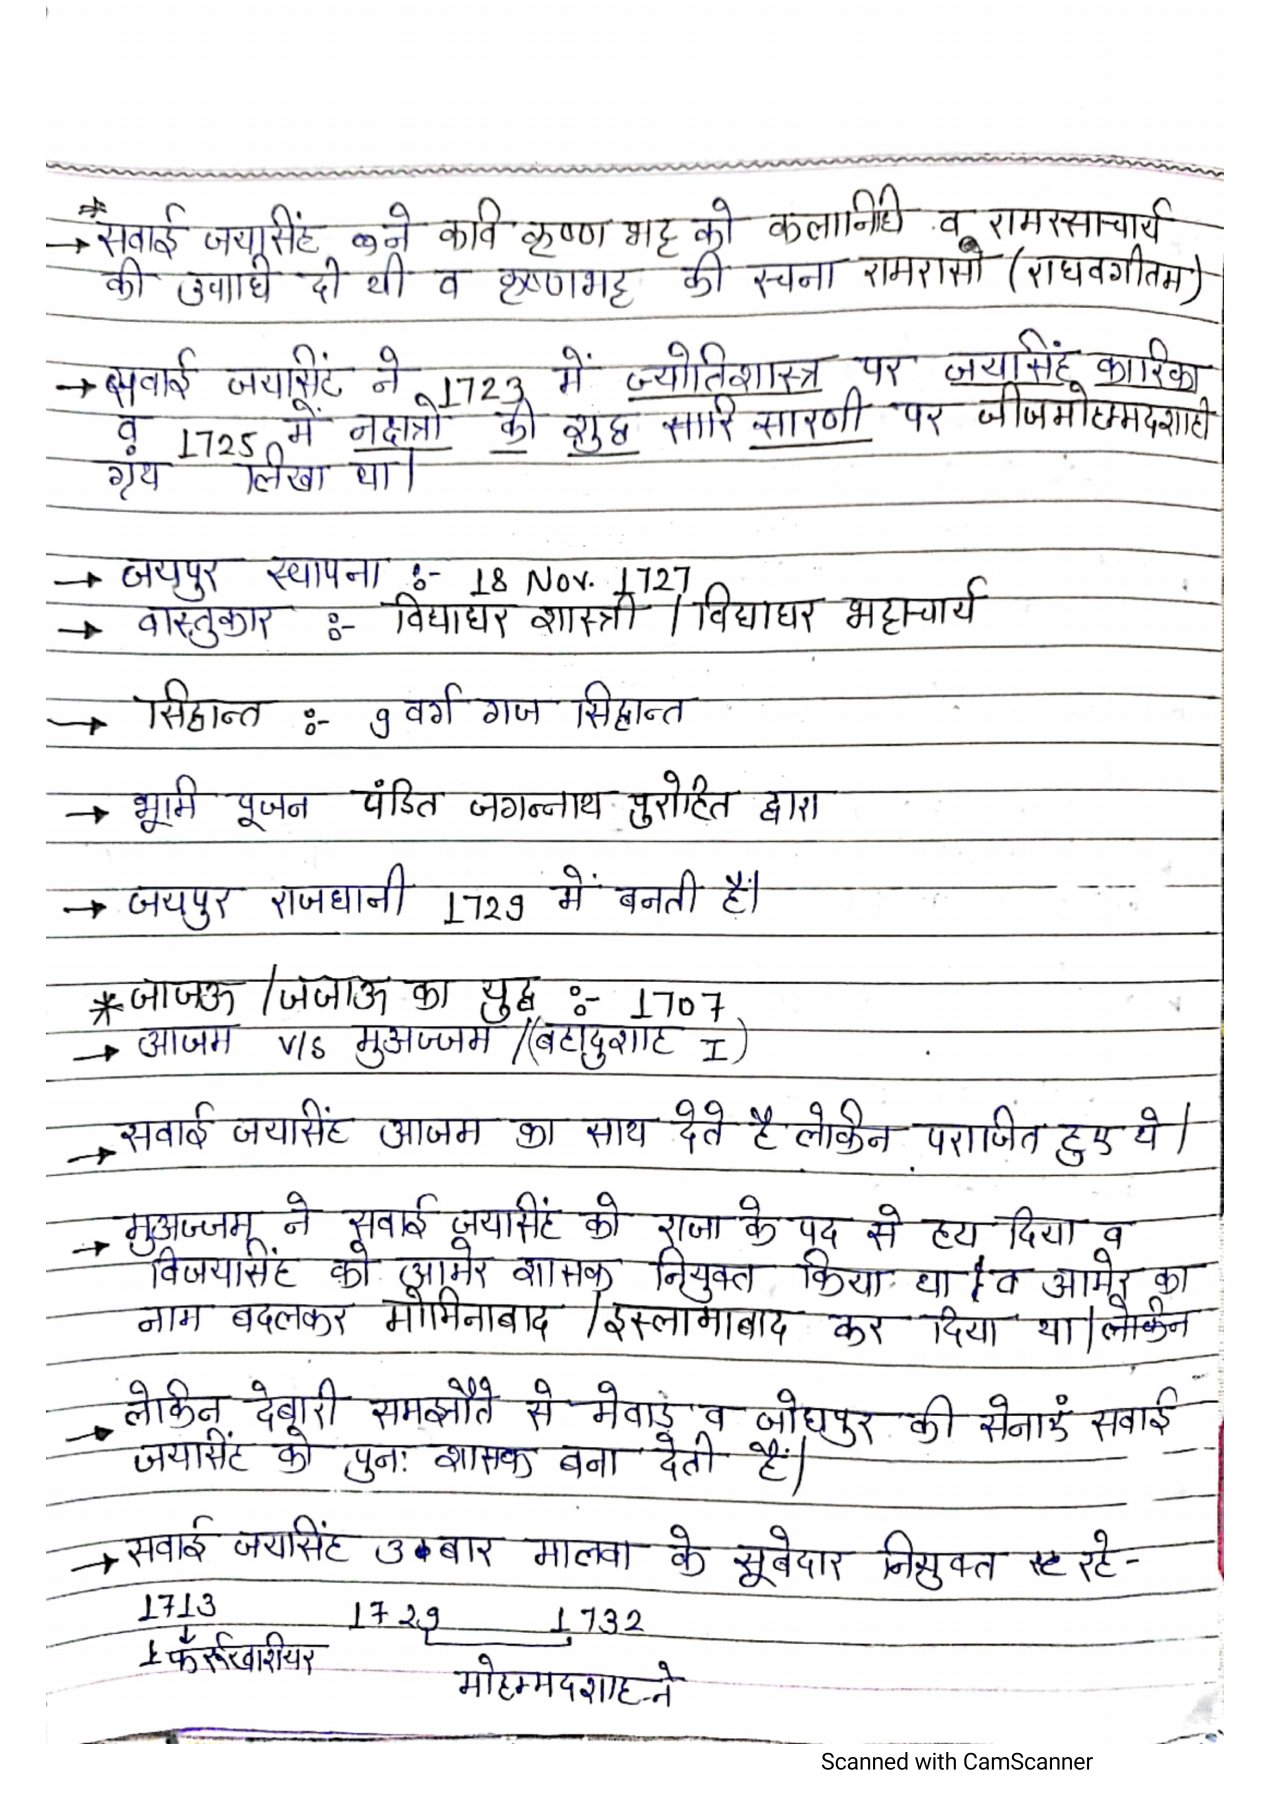 * → सवाई जयसिंह ने कवि कृष्ण भट्ट को कलानिधि व रामरसाचार्य
की उपाधि दी थी व कृष्णभट्ट की रचना रामरासो (राघवगीतम)
→ सवाई जयसिंह ने 1723 में ज्योतिशास्त्र पर जयसिंह कारिका
व 1725 में नक्षत्रो की शुद्ध सारि सारणी पर जीजमोहम्मदशाही
ग्रंथ लिखा था।
→ जयपुर स्थापना :- 18 Nov. 1727
→ वास्तुकार :- विद्याधर शास्त्री / विद्याधर भट्टाचार्य
→ सिद्धान्त :- 9 वर्ग गज सिद्धान्त
→ भूमि पूजन पंडित जगन्नाथ पुरोहित द्वारा
→ जयपुर राजधानी 1729 में बनती हैं।
* जाजऊ / जजाऊ का युद्ध :- 1707
→ आजम v/s मुअज्जम /(बहादुशाह I)
→ सवाई जयसिंह आजम का साथ देते है लेकिन पराजित हुए थे।
→ मुअज्जम ने सवाई जयसिंह को राजा के पद से हटा दिया व
विजयसिंह को आमेर शासक नियुक्त किया था व आमेर का
नाम बदलकर मोमिनाबाद / इस्लामाबाद कर दिया था। लेकिन
→ लेकिन देबारी समझौते से मेवाड़ व जोधपुर की सेनाएं सवाई
जयसिंह को पुनः शासक बना देती हैं।
→ सवाई जयसिंह 3 बार मालवा के सूबेदार नियुक्त रहे-
1713 1729 1732
↓ फर्रुखशीयर
मोहम्मदशाह-ने
Scanned with CamScanner